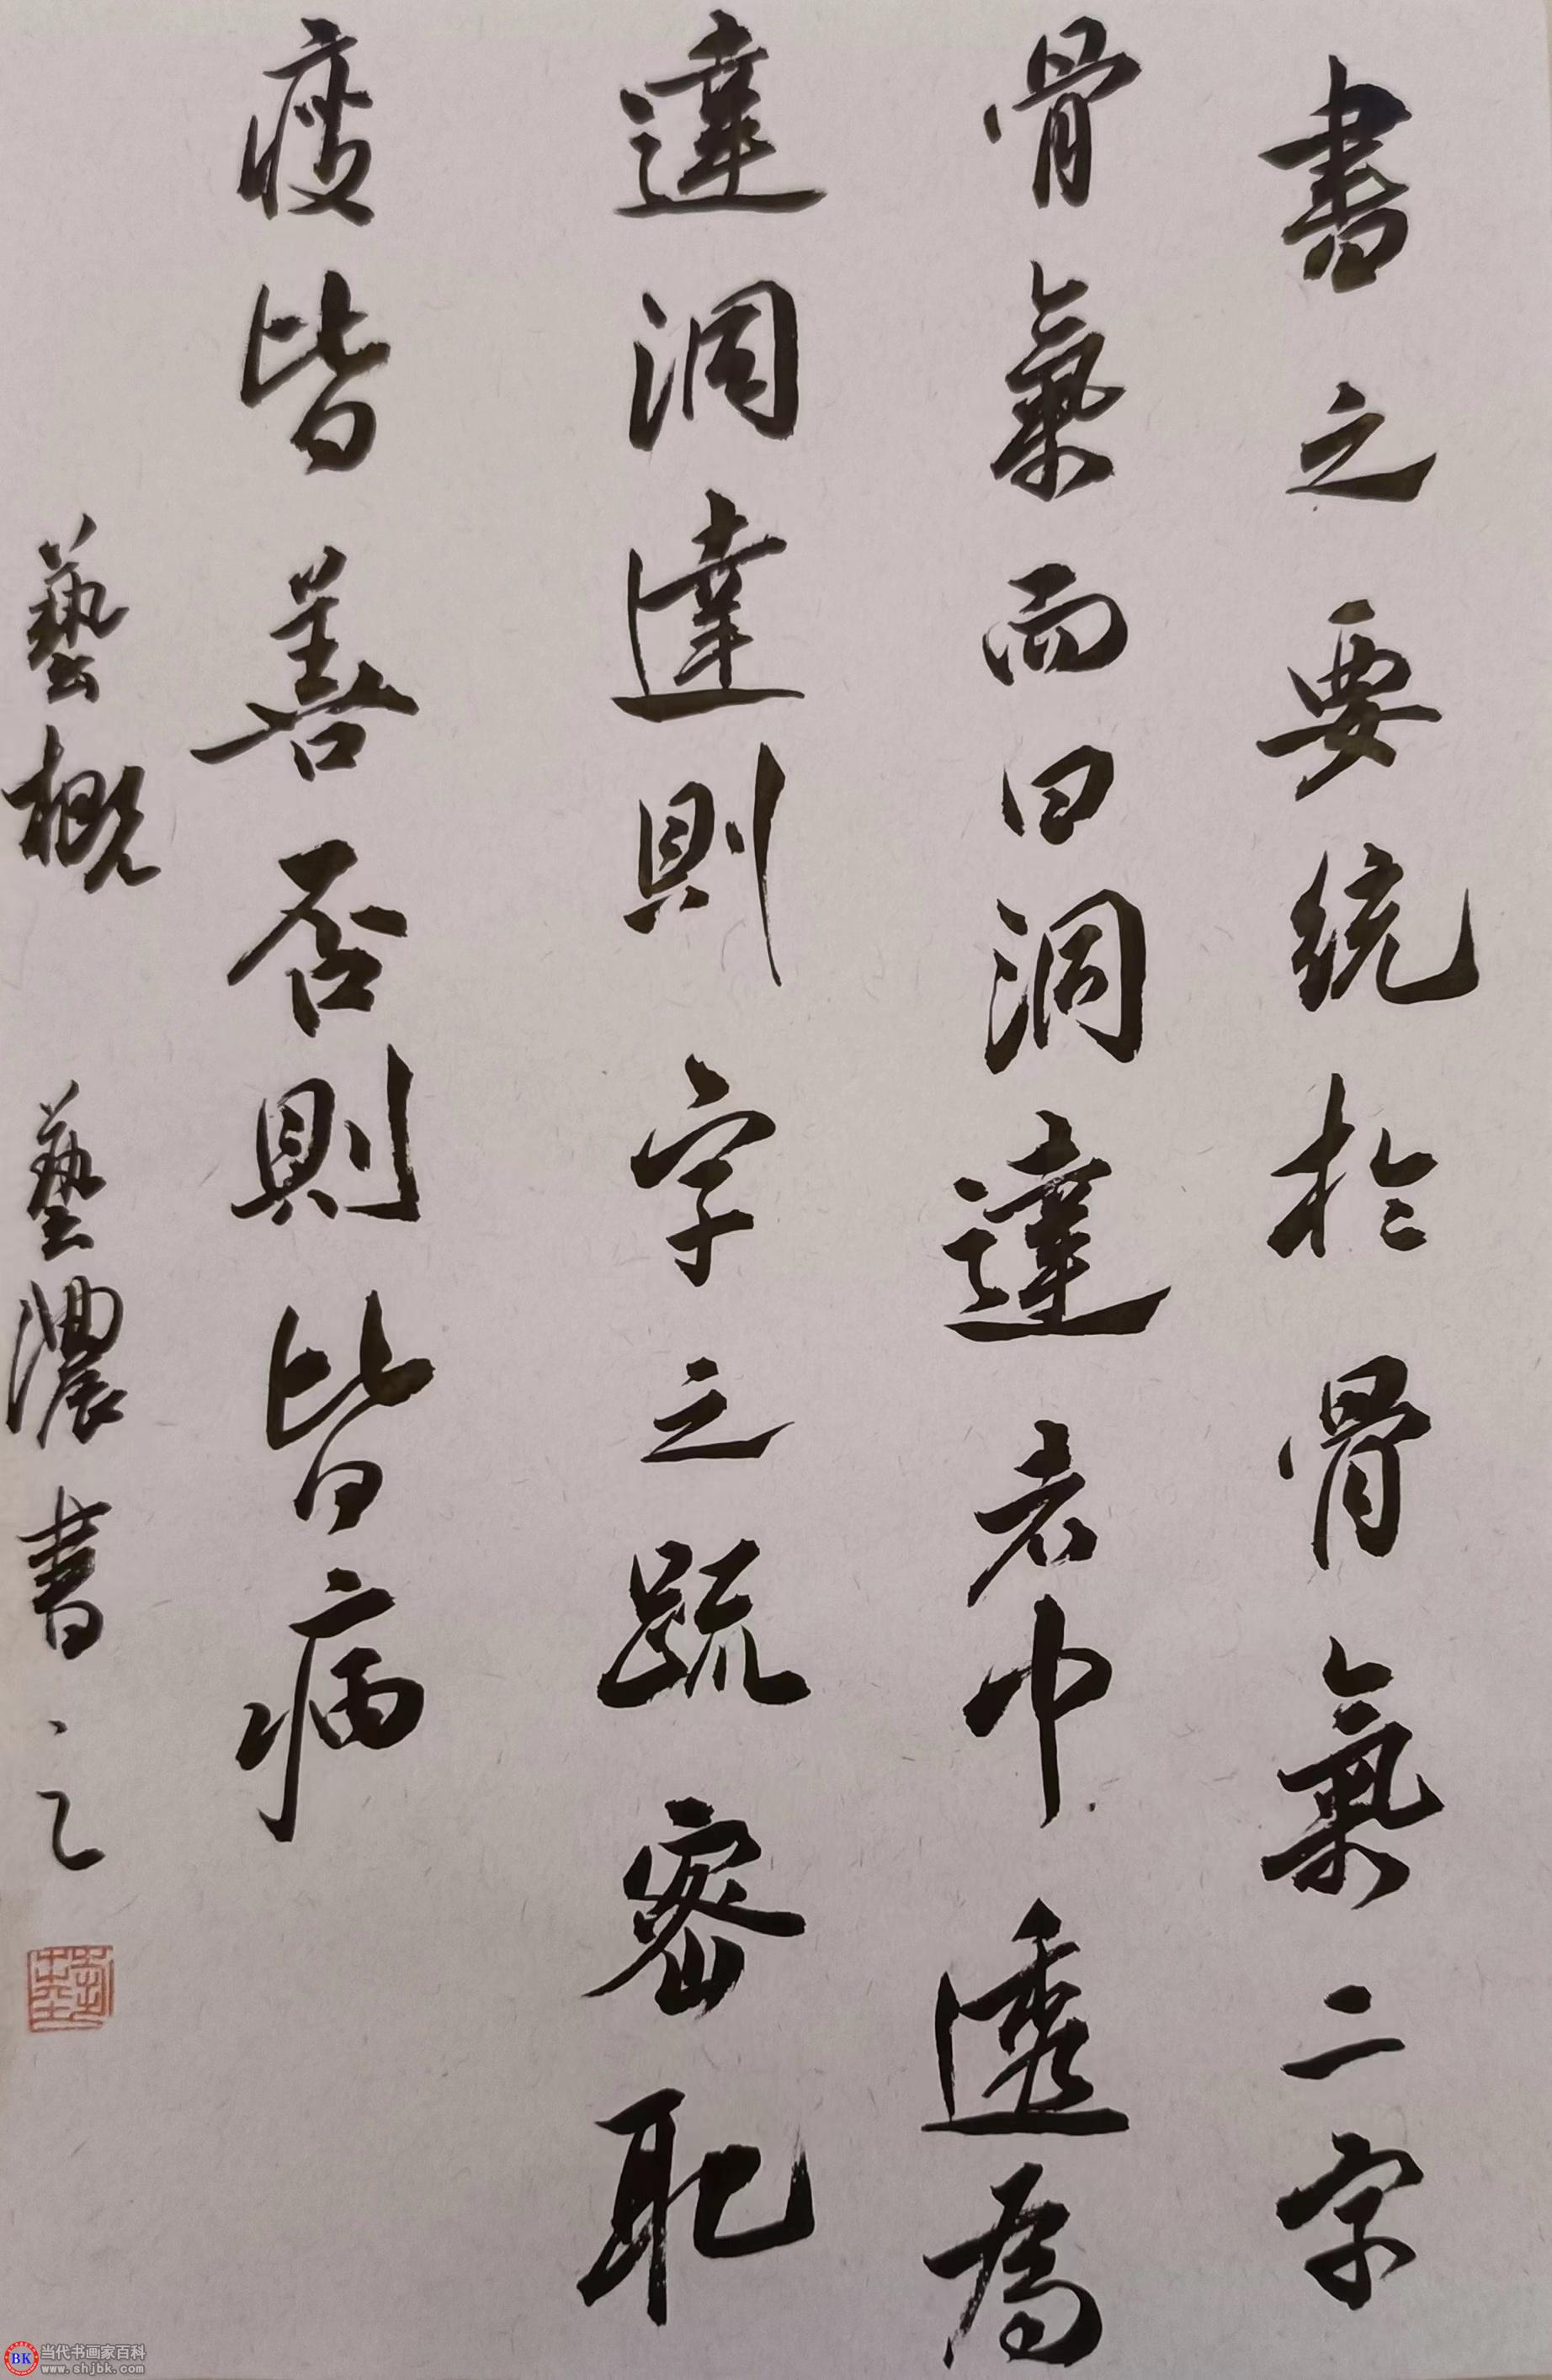 書之要統於骨氣二字
骨氣而曰洞達者中透為
達洞達則字之疏密肥
瘦皆善否則皆病
藝概 藝濃書之
BK 当代书画家百科
www.shjbk.com